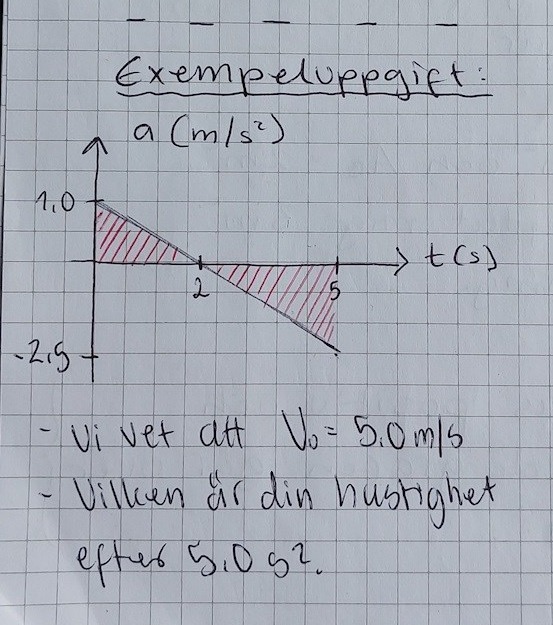 Exempeluppgift:
a (m/s²)
1,0
t(s)
2
5
-2,5
- Vi vet att V₀ = 5,0 m/s
- Vilken är din hastighet
efter 5,0 s?